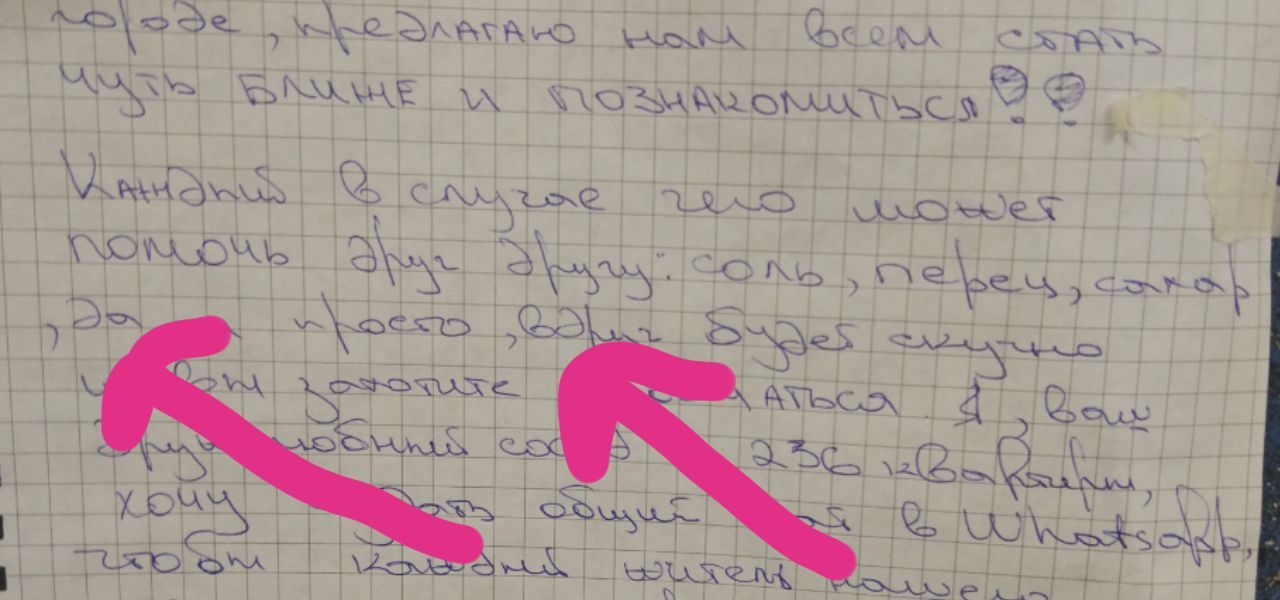 городе, предлагаю нам всем стать
чуть ближе и познакомиться!!
Каждый в случае чего может
помочь друг другу: соль, перец, сахар
, да просто, вдруг будет скучно
захотите
236 квартиры,
хочу общий в Whatsapp,
чтобы каждый житель нашего